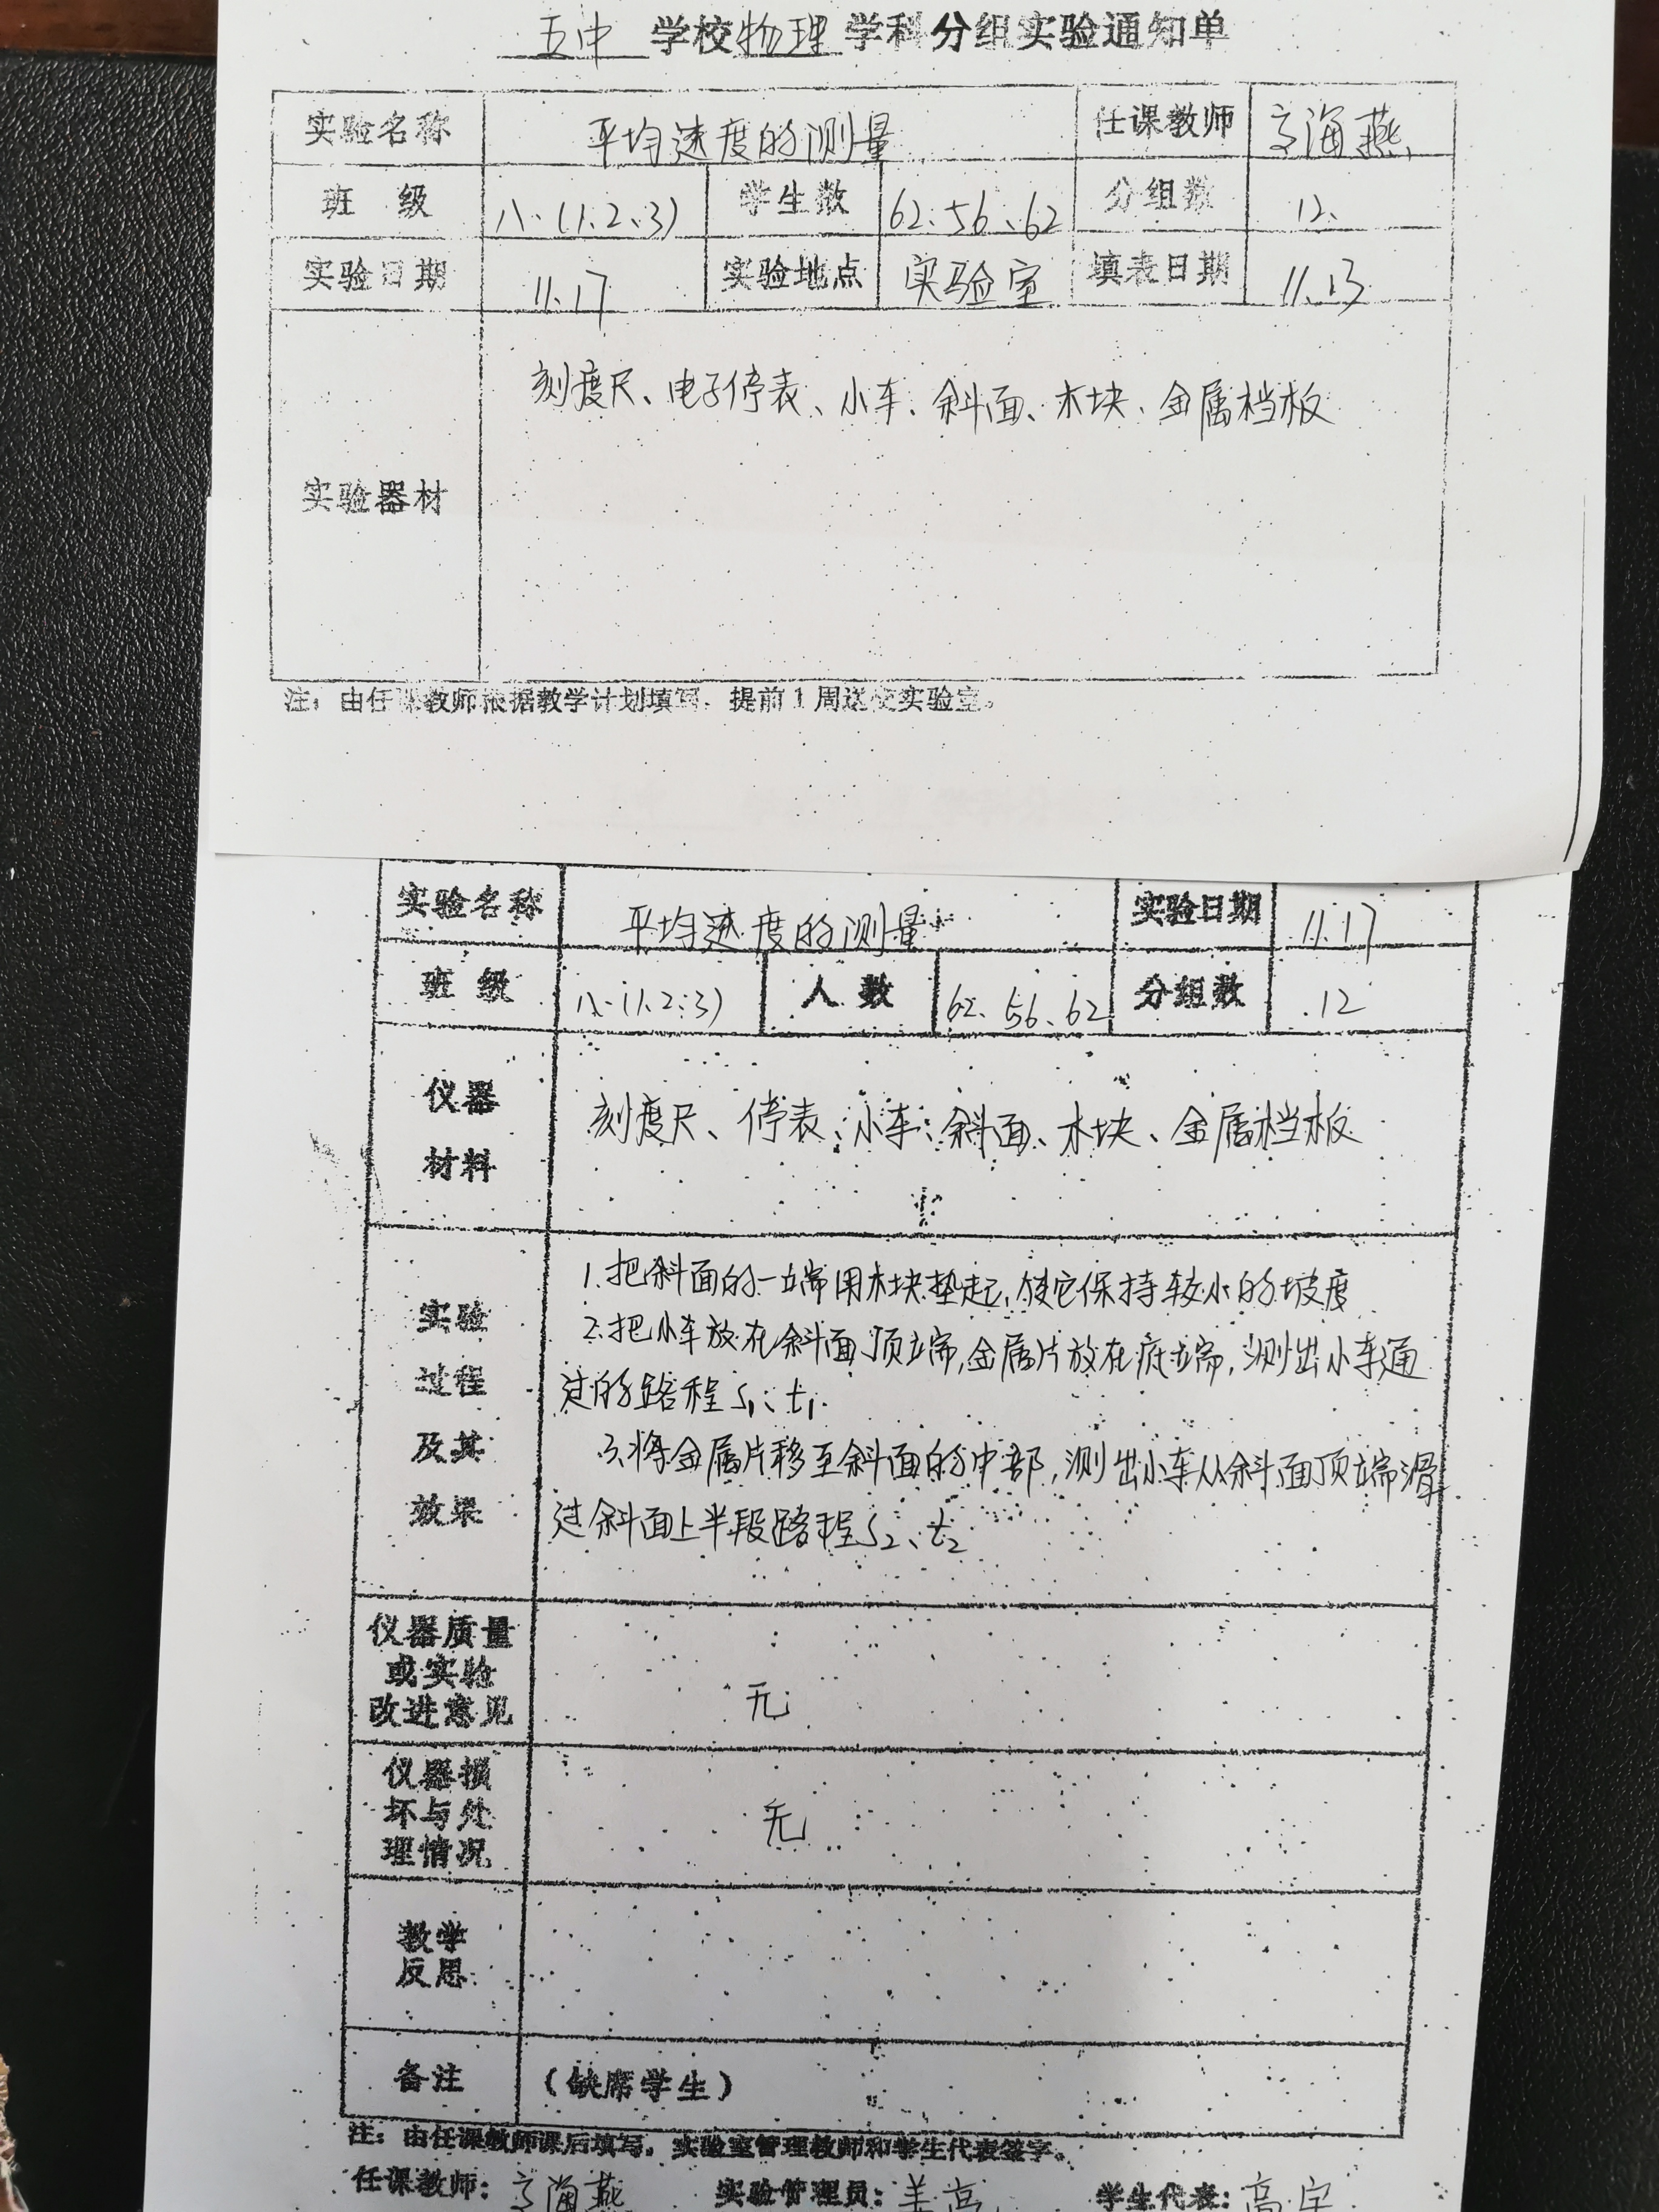 五中 学校 物理 学科分组实验通知单
实验名称 平均速度的测量 任课教师 海燕
班 级 八.(1.2.3) 学生数 62、56、62 分组数 12.
实验日期 11.17 实验地点 实验室 填表日期 11.13
实验器材 刻度尺、电子停表、小车、斜面、木块、金属档板
注：由任课教师根据教学计划填写，提前1周送交实验室。
实验名称 平均速度的测量 实验日期 11.17
班 级 八.(1.2.3) 人 数 62、56、62 分组数 12
仪器
材料
刻度尺、停表、小车、斜面、木块、金属档板
实验
过程
及其
效果
1.把斜面的一端用木块垫起,使它保持较小的坡度
2.把小车放在斜面顶端,金属片放在底端,测出小车通
过的路程s₁、t₁.
3.将金属片移至斜面的中部,测出小车从斜面顶端滑
过斜面上半段路程s₂、t₂
仪器质量
或实验
改进意见
无
仪器损
坏与处
理情况
无
教学
反思
备注 （缺席学生）
注：由任课教师课后填写，实验室管理教师和学生代表签字。
任课教师：海燕 实验管理员： 学生代表：高宇